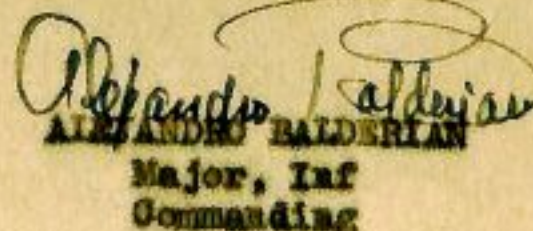 Alejandro Balderian
ALEJANDRO BALDERIAN
Major, Inf
Commanding